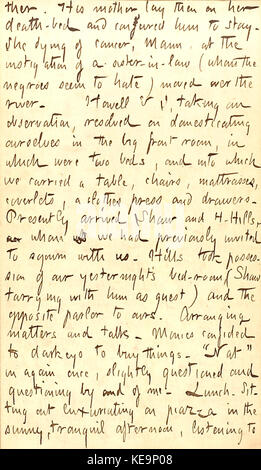 ther. His mother lay then on her
death-bed and conjured him to stay-
She dying of cancer, Mann, at the
instigation of a sister-in-law (whom the
negroes seem to hate) moved over the
river. Howell & I, taking an
observation, resolved on domesticating
ourselves in the big front room, in
which were two beds, and into which
we carried a table, chairs, mattrasses,
coverlets, a clothes press and drawers-
Presently arrived Shaw and H-Hills,
whom we had previously invited
to squm with us. Hills took posses-
sion of our yesternights bed-room (Shaw
tarrying with him as guest) and the
opposite parlor to ours. Arranging
matters and talk. Monies confided
to darkeys to buy things. "Nat"
in again once, slightly questioned and
questioning by and of me. Lunch. Sit-
ting out luxuriating on piazza in the
sunny, tranquil afternoon, listening to
alamy
KE9P08
www.alamy.com